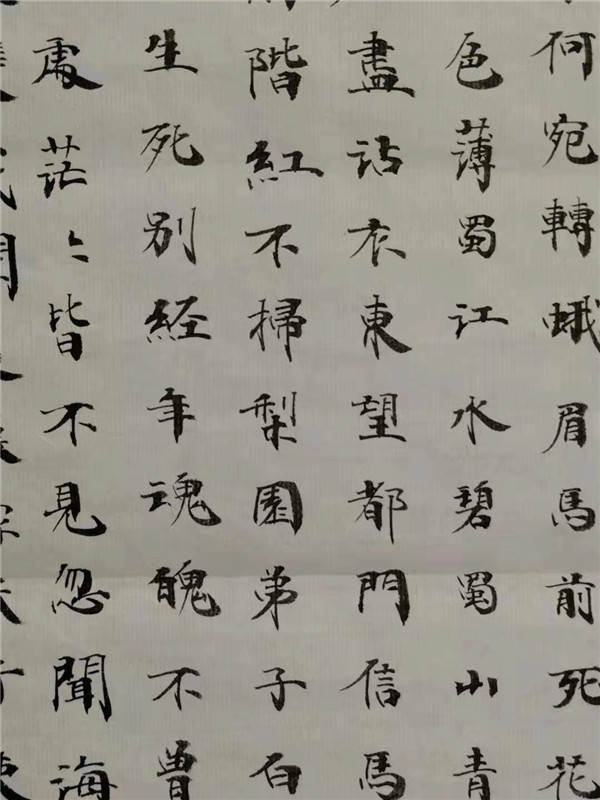 何宛轉蛾眉馬前死花
色薄蜀江水碧蜀山青
盡沾衣東望都門信馬
階紅不掃梨園弟子白
生死别經年魂魄不曾
處茫々皆不見忽聞海